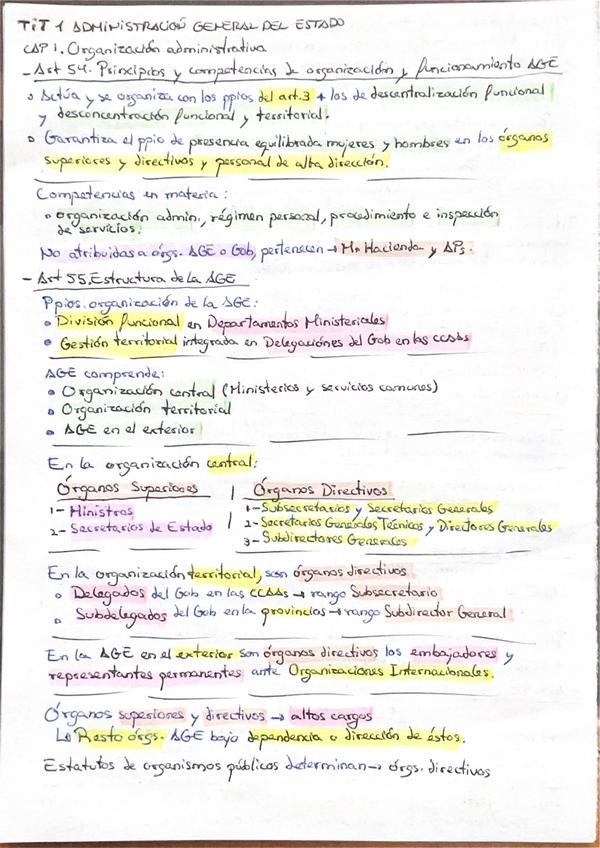 TIT 1 ADMINISTRACIÓN GENERAL DEL ESTADO
CAP 1. Organización administrativa
- Art 54. Principios y competencias de organización y funcionamiento AGE
Actúa y se organiza con los ppios del art.3 + los de descentralización funcional
y desconcentración funcional y territorial.
Garantiza el ppio de presencia equilibrada mujeres y hombres en los órganos
superiores y directivos y personal de alta dirección.
Competencias en materia:
organización admin., régimen personal, procedimiento e inspección
de servicios.
No atribuidas a órgs. AGE o Gob, pertenecen → Mº Hacienda y APs.
- Art 55. Estructura de la AGE
Ppios. organización de la AGE:
División funcional en Departamentos Ministeriales
Gestión territorial integrada en Delegaciones del Gob en las CCAAs
AGE comprende:
Organización central (Ministerios y servicios comunes)
Organización territorial
AGE en el exterior
En la organización central:
Órganos Superiores | Órganos Directivos
1- Ministros | 1- Subsecretarios y Secretarios Generales
2- Secretarios de Estado | 2- Secretarios Generales Técnicos y Directores Generales
3- Subdirectores Generales
En la organización territorial, son órganos directivos
Delegados del Gob en las CCAAs → rango Subsecretario
Subdelegados del Gob en la provincias → rango Subdirector General
En la AGE en el exterior son órganos directivos los embajadores y
representantes permanentes ante Organizaciones Internacionales.
Órganos superiores y directivos → altos cargos
Resto órgs. AGE bajo dependencia o dirección de éstos.
Estatutos de organismos públicos determinan → órgs. directivos